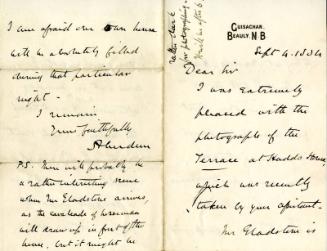 GUISACHAN.
BEAULY. N.B
Sept 4. 1884
Dear Sir
I was extremely
pleased with the
photographs of the
Terrace at Haddo House,
which was recently
taken by your assistant.
Mr Gladstone is
I am afraid our own house
will be absolutely filled
during that particular
night -
I remain
Yours faithfully
Aberdeen
P.S. There will probably be
a rather interesting scene
when Mr Gladstone arrives,
as the cavalcade of horsemen
will draw up in front of the
house, but it might be
rather dark
for photographing.